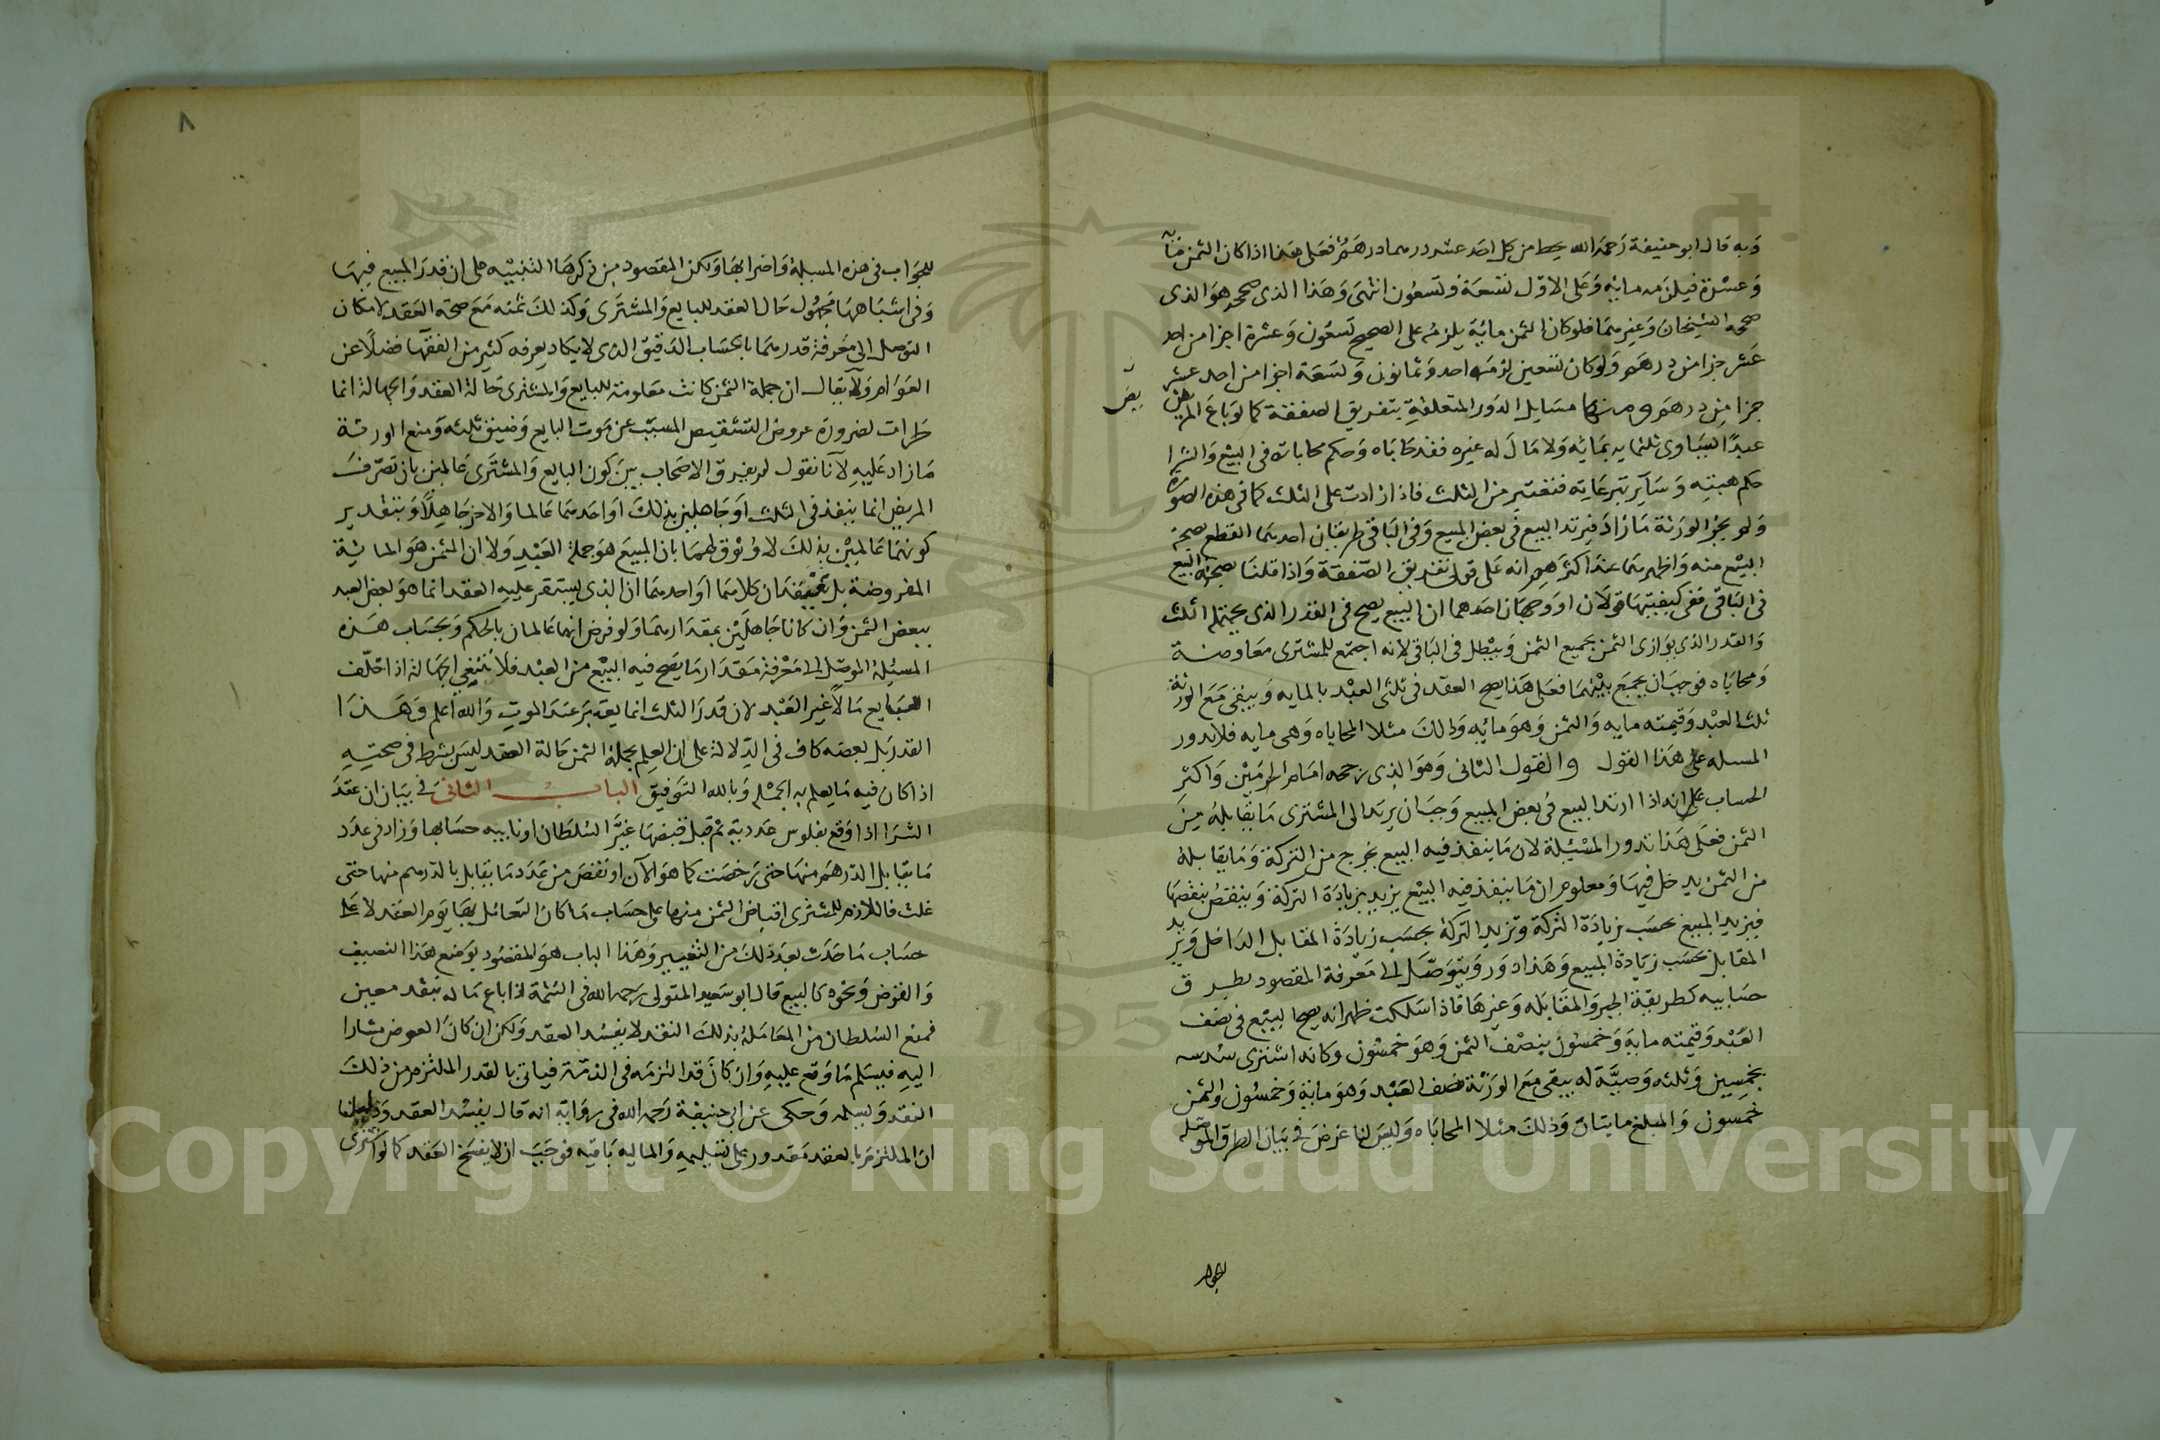 وبه قال ابو حنيفة رحمه الله يحط من كل احد عشر درهما درهم فعلى هذا اذا كان الثمن مائة
وعشرة فيلزمه مايه وعلى الاول تسعة وتسعون انتهى وهذا الذى صححه هو الذى
صححه الشيخان وغيرهما فلو كان الثمن مائة يلزمه على الصحيح تسعون وعشرة اجزا من احد
عشر جزا من درهم ولو كان تسعين لزمه احد وثمانون وتسعة اجزا من احد عشر
جزا من درهم ومنها مسايل الدور المتعلقة بتفريق الصفقة كما لو باع المريض
عبدًا يساوى ثلثمايه بمايه ولا مال له غيره فقد حاباه وحكم محاباته فى البيع والشرا
حكم هبته وساير تبرعاته فتعتبر من الثلث فاذا زادت على الثلث كما فى هذه الصورة
ولم يجز الورثة ما زاد فيرتد البيع فى بعض المبيع وفى الباقى طريقان احدهما القطع بصحة
البيع منه واظهرهما عند اكثرهم انه على قولى تفريق الصفقة واذا قلنا بصحة البيع
فى الباقى ففى كيفيتها قولان او وجهان احدهما ان البيع يصح فى القدر الذى يحتمله الثلث
والقدر الذى يوازى الثمن بجميع الثمن ويبطل فى الباقى لانه اجتمع للمشترى معاوضة
ومحاباه فوجب ان يجمع بينهما فعلى هذا يصح العقد فى ثلثى العبد بالمايه ويبقى مع الورثة
ثلث العبد وقيمته مايه والثمن وهو مايه وذلك مثلا المحاباه وهى مايه فلا تدور
المسله على هذا القول والقول الثانى وهو الذى رجحه امام الحرمين واكثر
الحساب على انه اذا ارتد البيع فى بعض المبيع وجب ان يرتد الى المشترى ما يقابله من
الثمن فعلى هذا تدور المسئلة لان ما ينفذ فيه البيع يخرج من التركة وما يقابله
من الثمن يدخل فيها ومعلوم ان ما ينفذ فيه البيع يزيد بزيادة التركة وينقص بنقصها
فيزيد المبيع بحسب زيادة التركة وتزيد التركة بحسب زيادة المقابل الداخل ويزيد
المقابل بحسب زيادة المبيع وهذا دور ويتوصل الى معرفة المقصود بطرق
حسابيه كطريقة الجبر والمقابله وغيرها فاذا سلكت ظهر انه يصح البيع فى نصف
العبد وقيمته ماية وخمسون بنصف الثمن وهو خمسون وكانه اشترى سدسه
بخمسين وثلثه وصية له يبقى مع الورثة نصف العبد وهو ماية وخمسون والثمن
خمسون والمبلغ مايتان وذلك مثلا المحاباه وليس لنا غرض فى بيان الطرق الموصله
للجواب
٨
للجواب فى هذه المسيلة واضرابها ولكن المقصود من ذكرها التنبيه على ان قدر المبيع فيها
وفى اشباهها مجهول حال العقد للبايع والمشترى وكذلك ثمنه مع صحة العقد لامكان
التوصل الى معرفة قدرهما بالحساب الدقيق الذى لا يكاد يعرفه كثير من الفقها فضلًا عن
العوام ولا يقال ان جملة الثمن كانت معلومة للبايع والمشترى حالة العقد والجهالة انما
طرات لضرورة عروض التشقيص المسبب عن موت البايع وضيق ثلثه ومنع الورثة
ما زاد عليه لانا نقول لم يفرق الاصحاب بين كون البايع والمشترى عالمين بان تصرف
المريض انما ينفذ فى الثلث او جاهلين بذلك او احدهما عالما والاخر جاهلًا وبتقدير
كونهما عالمين بذلك لا وثوق لهما بان المبيع هو جملة العبد ولا ان الثمن هو الماية
المفروضة بل يعتقدان كلاهما او احدهما ان الذى يستقر عليه العقد انما هو بعض العبد
ببعض الثمن وان كانا جاهلين بمقدارهما ولو فرض انهما عالمان بالحكم وبحساب هذه
المسيلة الموصل الى معرفة مقدار ما يصح فيه البيع من العبد فلا تنتفى الجهالة اذا خلف
البايع مالًا غير العبد لان قدر الثلث انما يعتبر عند الموت والله اعلم وهذا
القدر بل بعضه كاف فى الدلالة على ان العلم بجملة الثمن حالة العقد ليس بشرط فى صحته
اذا كان فيه ما يعلم به الجمله وبالله التوفيق الباب الثانى فى بيان ان عقد
الشرا اذا وقع بفلوس عددية ثم قبل قبضها غير السلطان او نايبه حسابها وزاد فى عدد
ما يقابل الدرهم منها حتى رخصت كما هو الآن او نقص من عدد ما يقابل بالدرهم منها حتى
غلت فاللازم للمشترى اقباض الثمن منها على حساب ما كان التعامل بها يوم العقد لا على
حساب ما حدث بعد ذلك من التغيير وهذا الباب هو المقصود بوضع هذا التصنيف
والقرض ونحوه كالبيع قال ابو سعيد المتولى رحمه الله فى التتمة اذا باع ماله بنقد معين
فمنع السلطان من المعاملة بذلك النقد لا يفسد العقد ولكن ان كان العوض مشارا
اليه فيسلم ما وقع عليه وان كان قد التزمه فى الذمة فياتى بالقدر الملتزم من ذلك
النقد ويسلمه وحكى عن ابى حنيفة رحمه الله فى رواية انه قال يفسد العقد ودليلنا
ان الملتزم بالعقد مقدور على تسليمه والماليه باقيه فوجب ان لا ينفسخ العقد كما لو اشترى